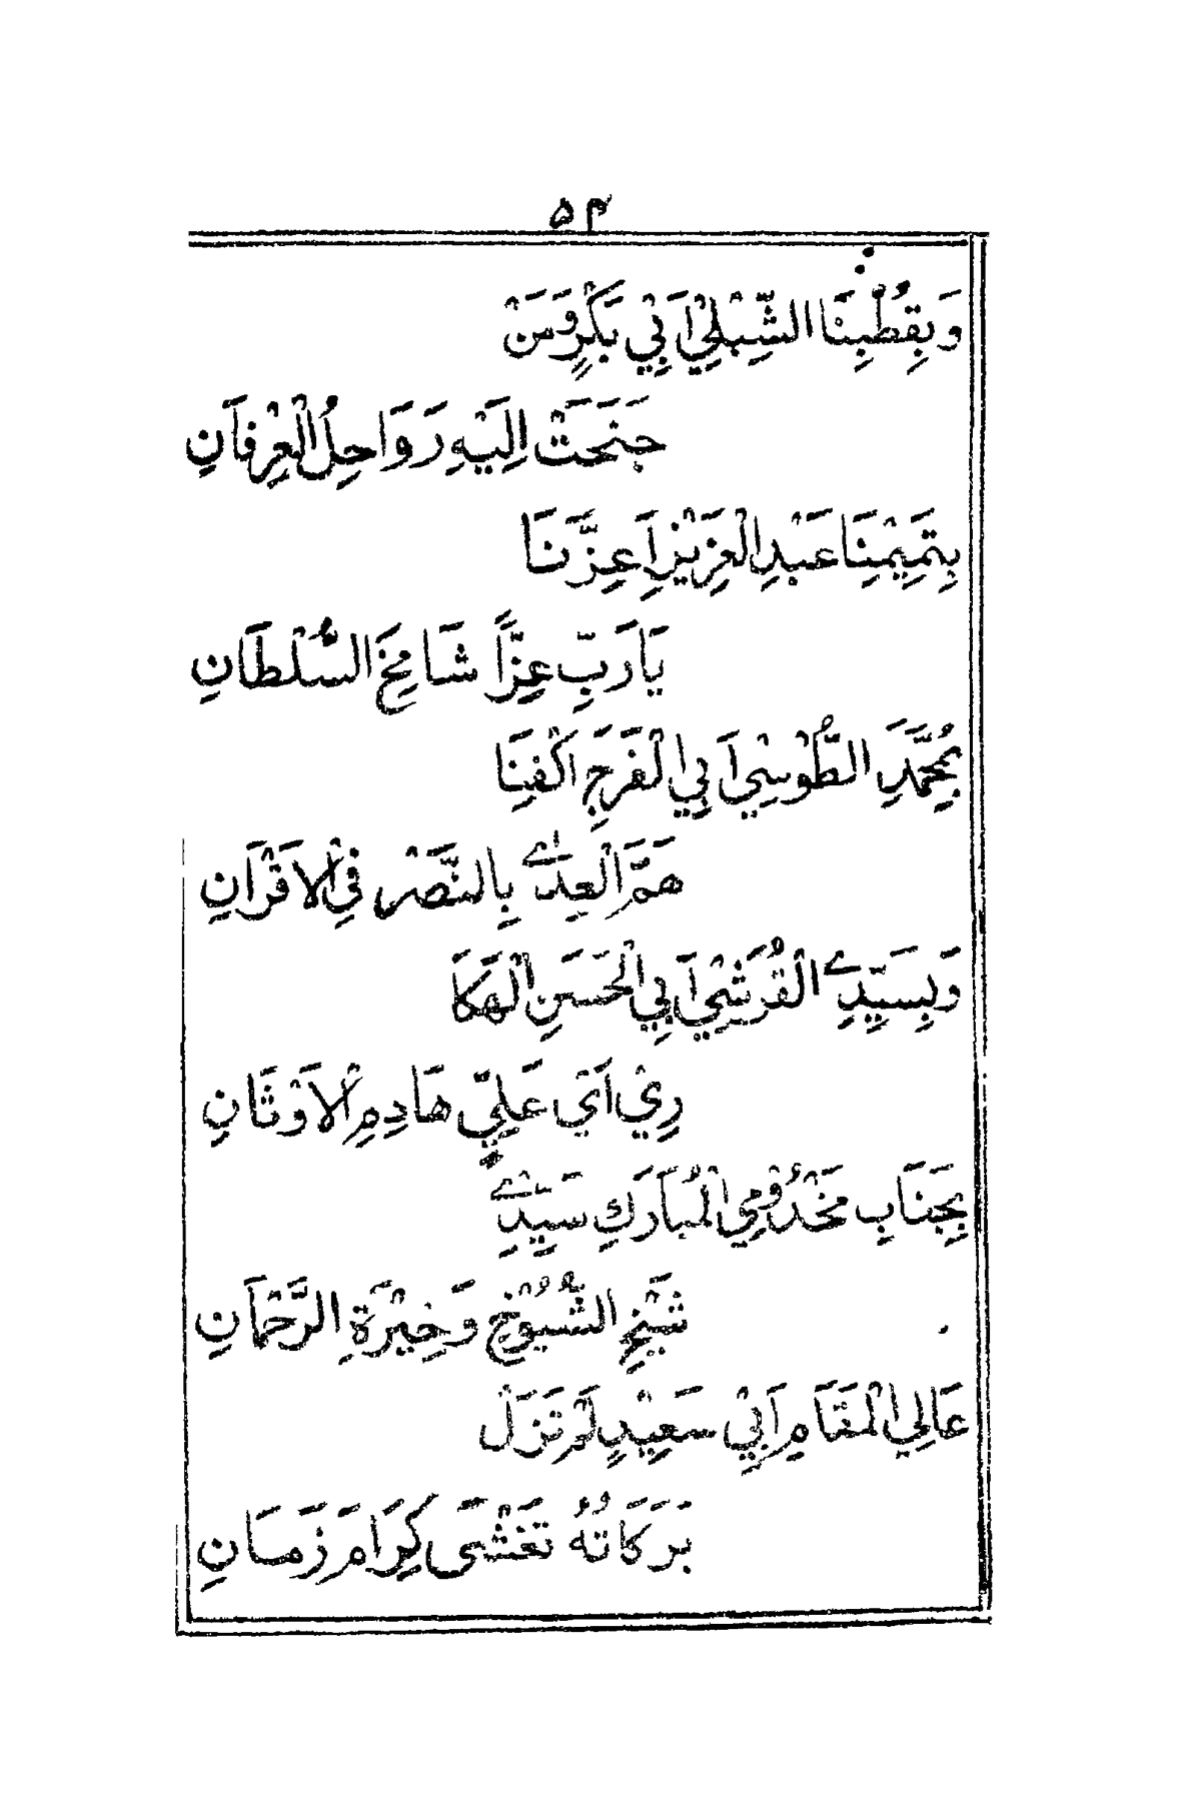 ۵۴
وَبِقُطْبِنَا الشِّبْلِيْ اَبِيْ بَكْرٍ وَمَنْ
جَنَحَتْ اِلَيْهِ رَوَاحِلُ الْعِرْفَانِ
بِتَمِيْمِنَا عَبْدِ الْعَزِيْزِ اَعِزَّنَا
يَارَبِّ عِزًّا شَامِخَ السُّلْطَانِ
بِمُحَمَّدِ الطُّوْسِيْ اَبِي الْفَرَجِ اكْفِنَا
هَمَّ الْعِدٰے بِالنَّصْرِ فِي الْاَقْرَانِ
وَبِسَيِّدِے الْقُرَشِيْ اَبِي الْحَسَنِ الْهَكَا
رِيْ اَيْ عَلِيٍّ هَادِمِ الْاَوْثَانِ
بِجَنَابِ مَخْدُوْمِي الْمُبَارَكِ سَيِّدِے
شَيْخِ الشُّيُوْخِ وَخِيْرَةِ الرَّحْمَانِ
عَالِي الْمَقَامِ اَبِيْ سَعِيْدٍ لَمْ تَزَلْ
بَرَكَاتُهٗ تَغْشَى كِرَامَ زَمَانِ